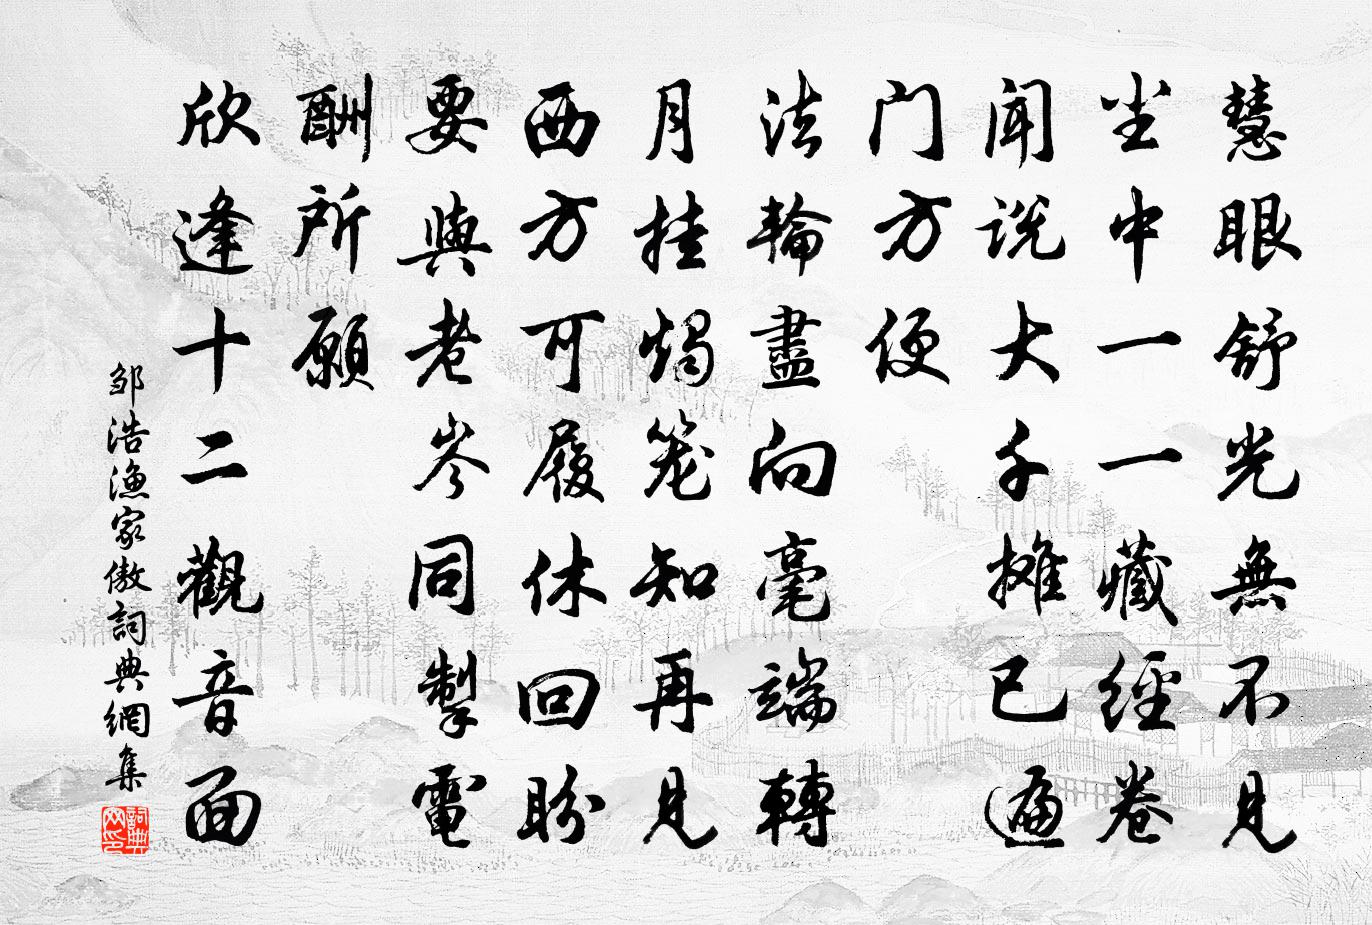 慧眼舒光無不见
坐中一一藏經卷
闻说大千摊已遍
门方便
法輪盡向毫端轉
月挂燭笼知再见
西方可履休回盼
要與老岑同掣電
酬所願
欣逢十二觀音面
邹浩渔家傲詞典網集
詞典网印